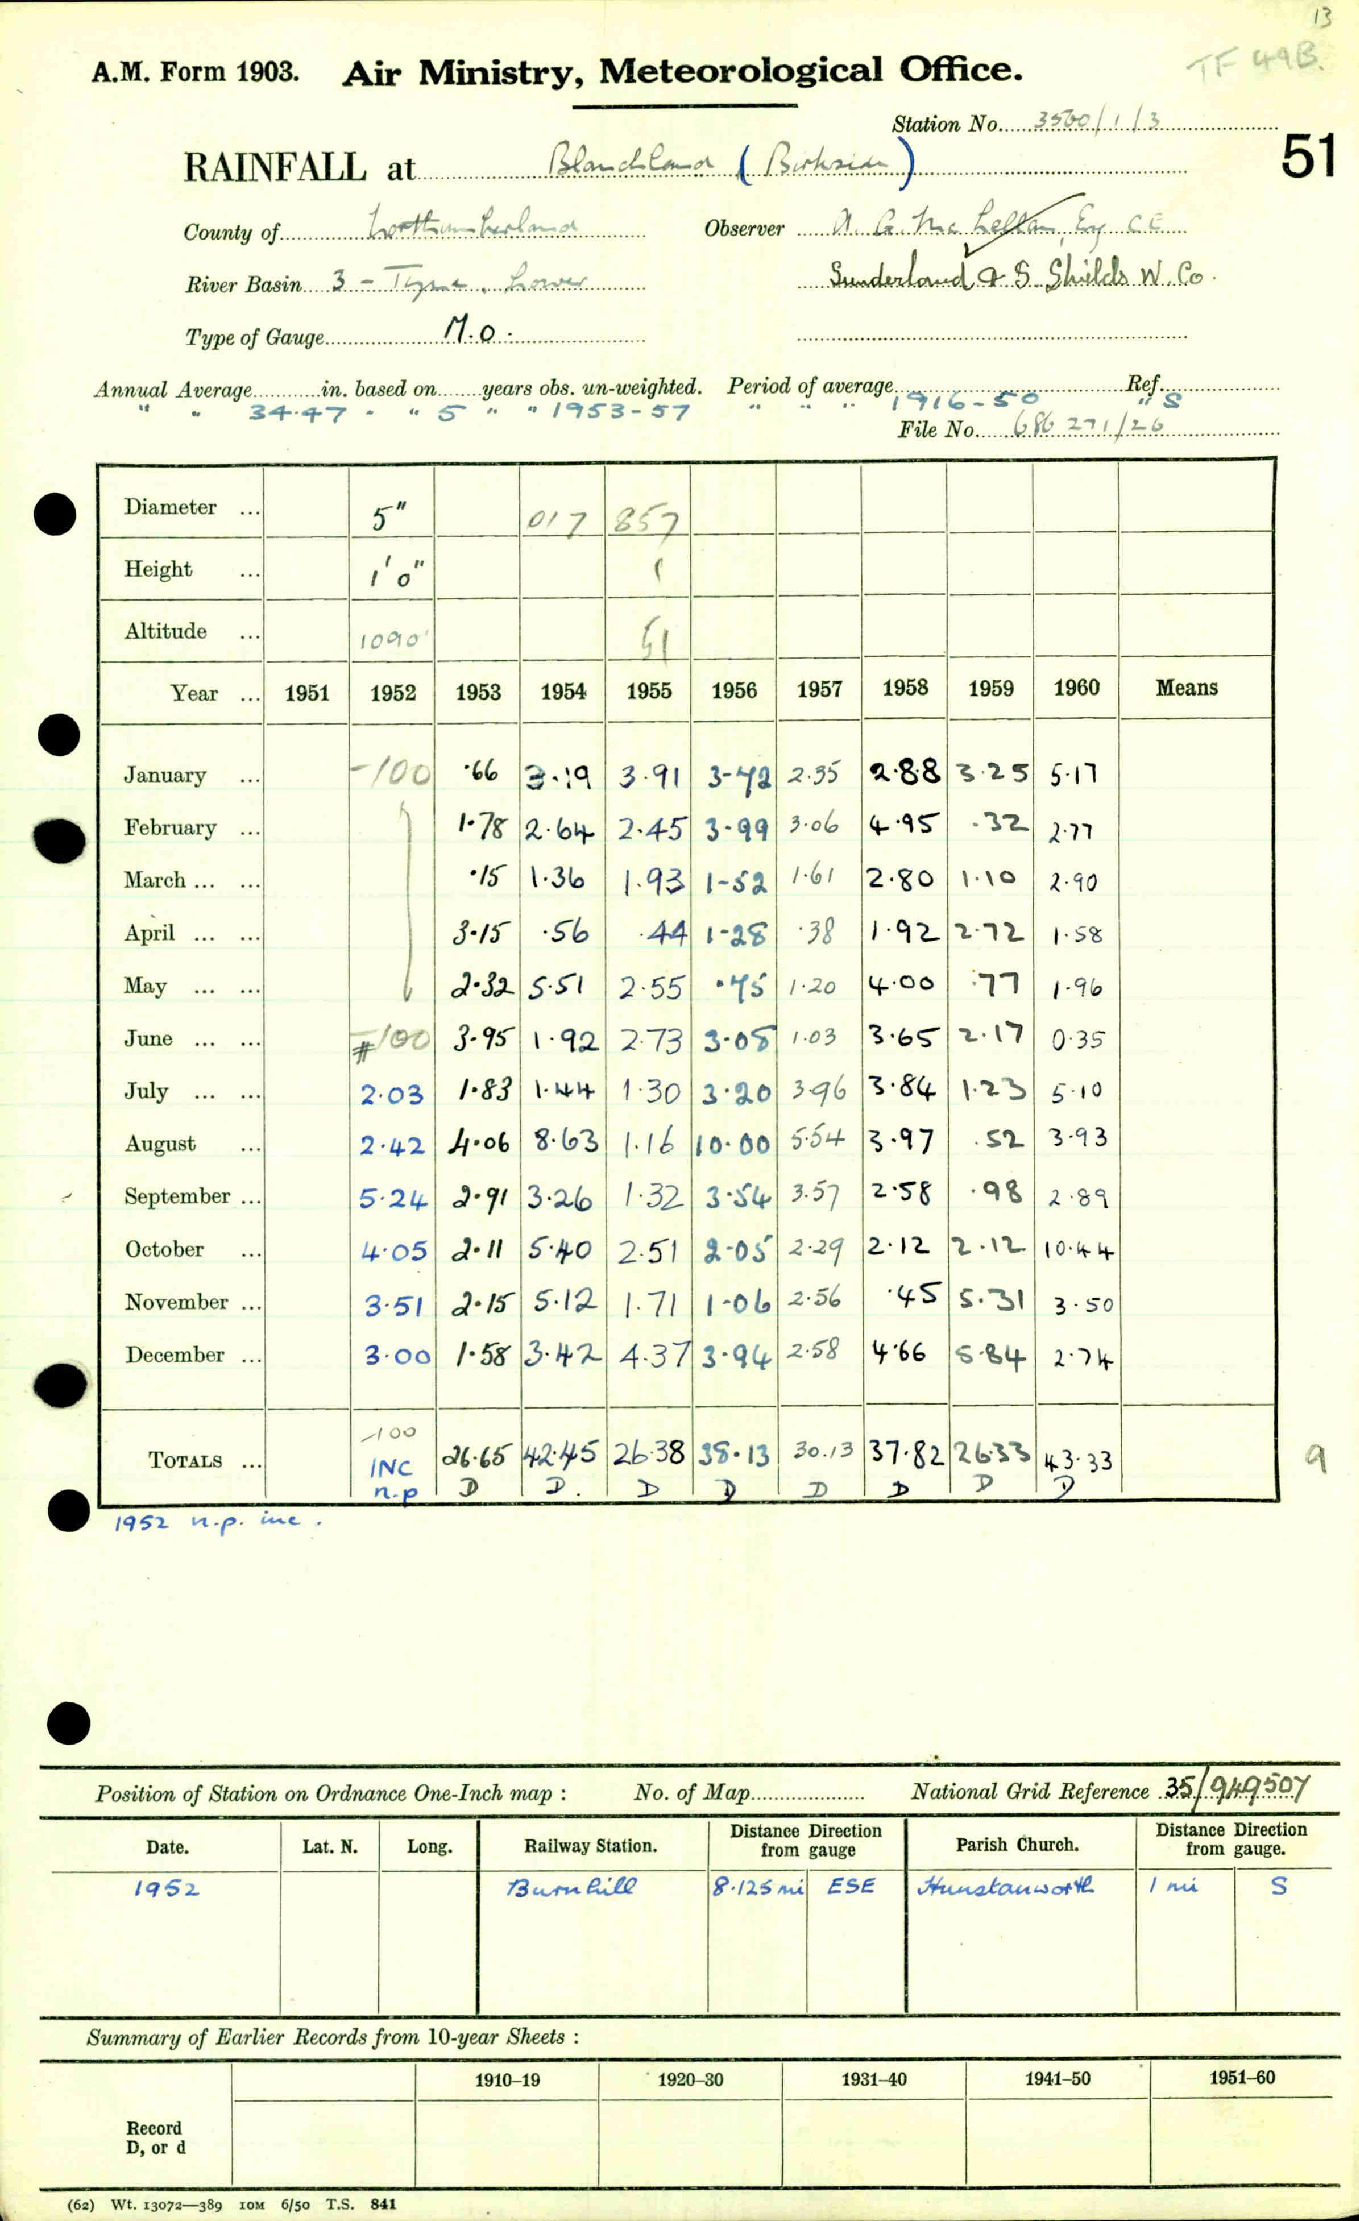 13
TF 49B.
A.M. Form 1903. Air Ministry, Meteorological Office.
Station No. 3560/1/3
51
RAINFALL at Blanchland (Birkside)
County of Northumberland Observer A. G. McLellan, Esq C E
River Basin 3 - Tyne, Lower Sunderland & S Shields W. Co.
Type of Gauge M.O.
Annual Average in. based on years obs. un-weighted. Period of average Ref.
" " 34.47 " " 5 " " 1953-57 " " " 1916-50 " S
File No. 686 271/26
Diameter ... 5" 017 857
Height ... 1'0" 1
Altitude ... 1090' 51
Year ... 1951 1952 1953 1954 1955 1956 1957 1958 1959 1960 Means
January ... -100 .66 3.19 3.91 3-42 2.35 2.88 3.25 5.17
February ... 1.78 2.64 2.45 3-99 3.06 4.95 .32 2.77
March ... ... .15 1.36 1.93 1-52 1.61 2.80 1.10 2.90
April ... ... 3.15 .56 .44 1-28 .38 1.92 2.72 1.58
May ... ... 2.32 5.51 2.55 .75 1.20 4.00 .77 1.96
June ... ... # -100 3.95 1.92 2.73 3.08 1.03 3.65 2.17 0.35
July ... ... 2.03 1.83 1.44 1.30 3.20 3.96 3.84 1.23 5.10
August ... 2.42 4.06 8.63 1.16 10.00 5.54 3.97 .52 3.93
September ... 5.24 2.91 3.26 1.32 3.54 3.57 2.58 .98 2.89
October ... 4.05 2.11 5.40 2.51 2.05 2.29 2.12 2.12 10.44
November ... 3.51 2.15 5.12 1.71 1-06 2.56 .45 5.31 3.50
December ... 3.00 1.58 3.42 4.37 3.94 2.58 4.66 5.84 2.74
-100
TOTALS ... INC 26.65 42.45 26.38 38.13 30.13 37.82 26.33 43.33 9
n.p D D. D D D D D D
1952 n.p. inc.
Position of Station on Ordnance One-Inch map : No. of Map National Grid Reference 35/949507
Date. Lat. N. Long. Railway Station. Distance Direction from gauge Parish Church. Distance Direction from gauge.
1952 Burnhill 8.125 mi ESE Hunstanworth 1 mi S
Summary of Earlier Records from 10-year Sheets :
1910–19 1920–30 1931–40 1941–50 1951–60
Record
D, or d
(62) Wt. 13072—389 10M 6/50 T.S. 841